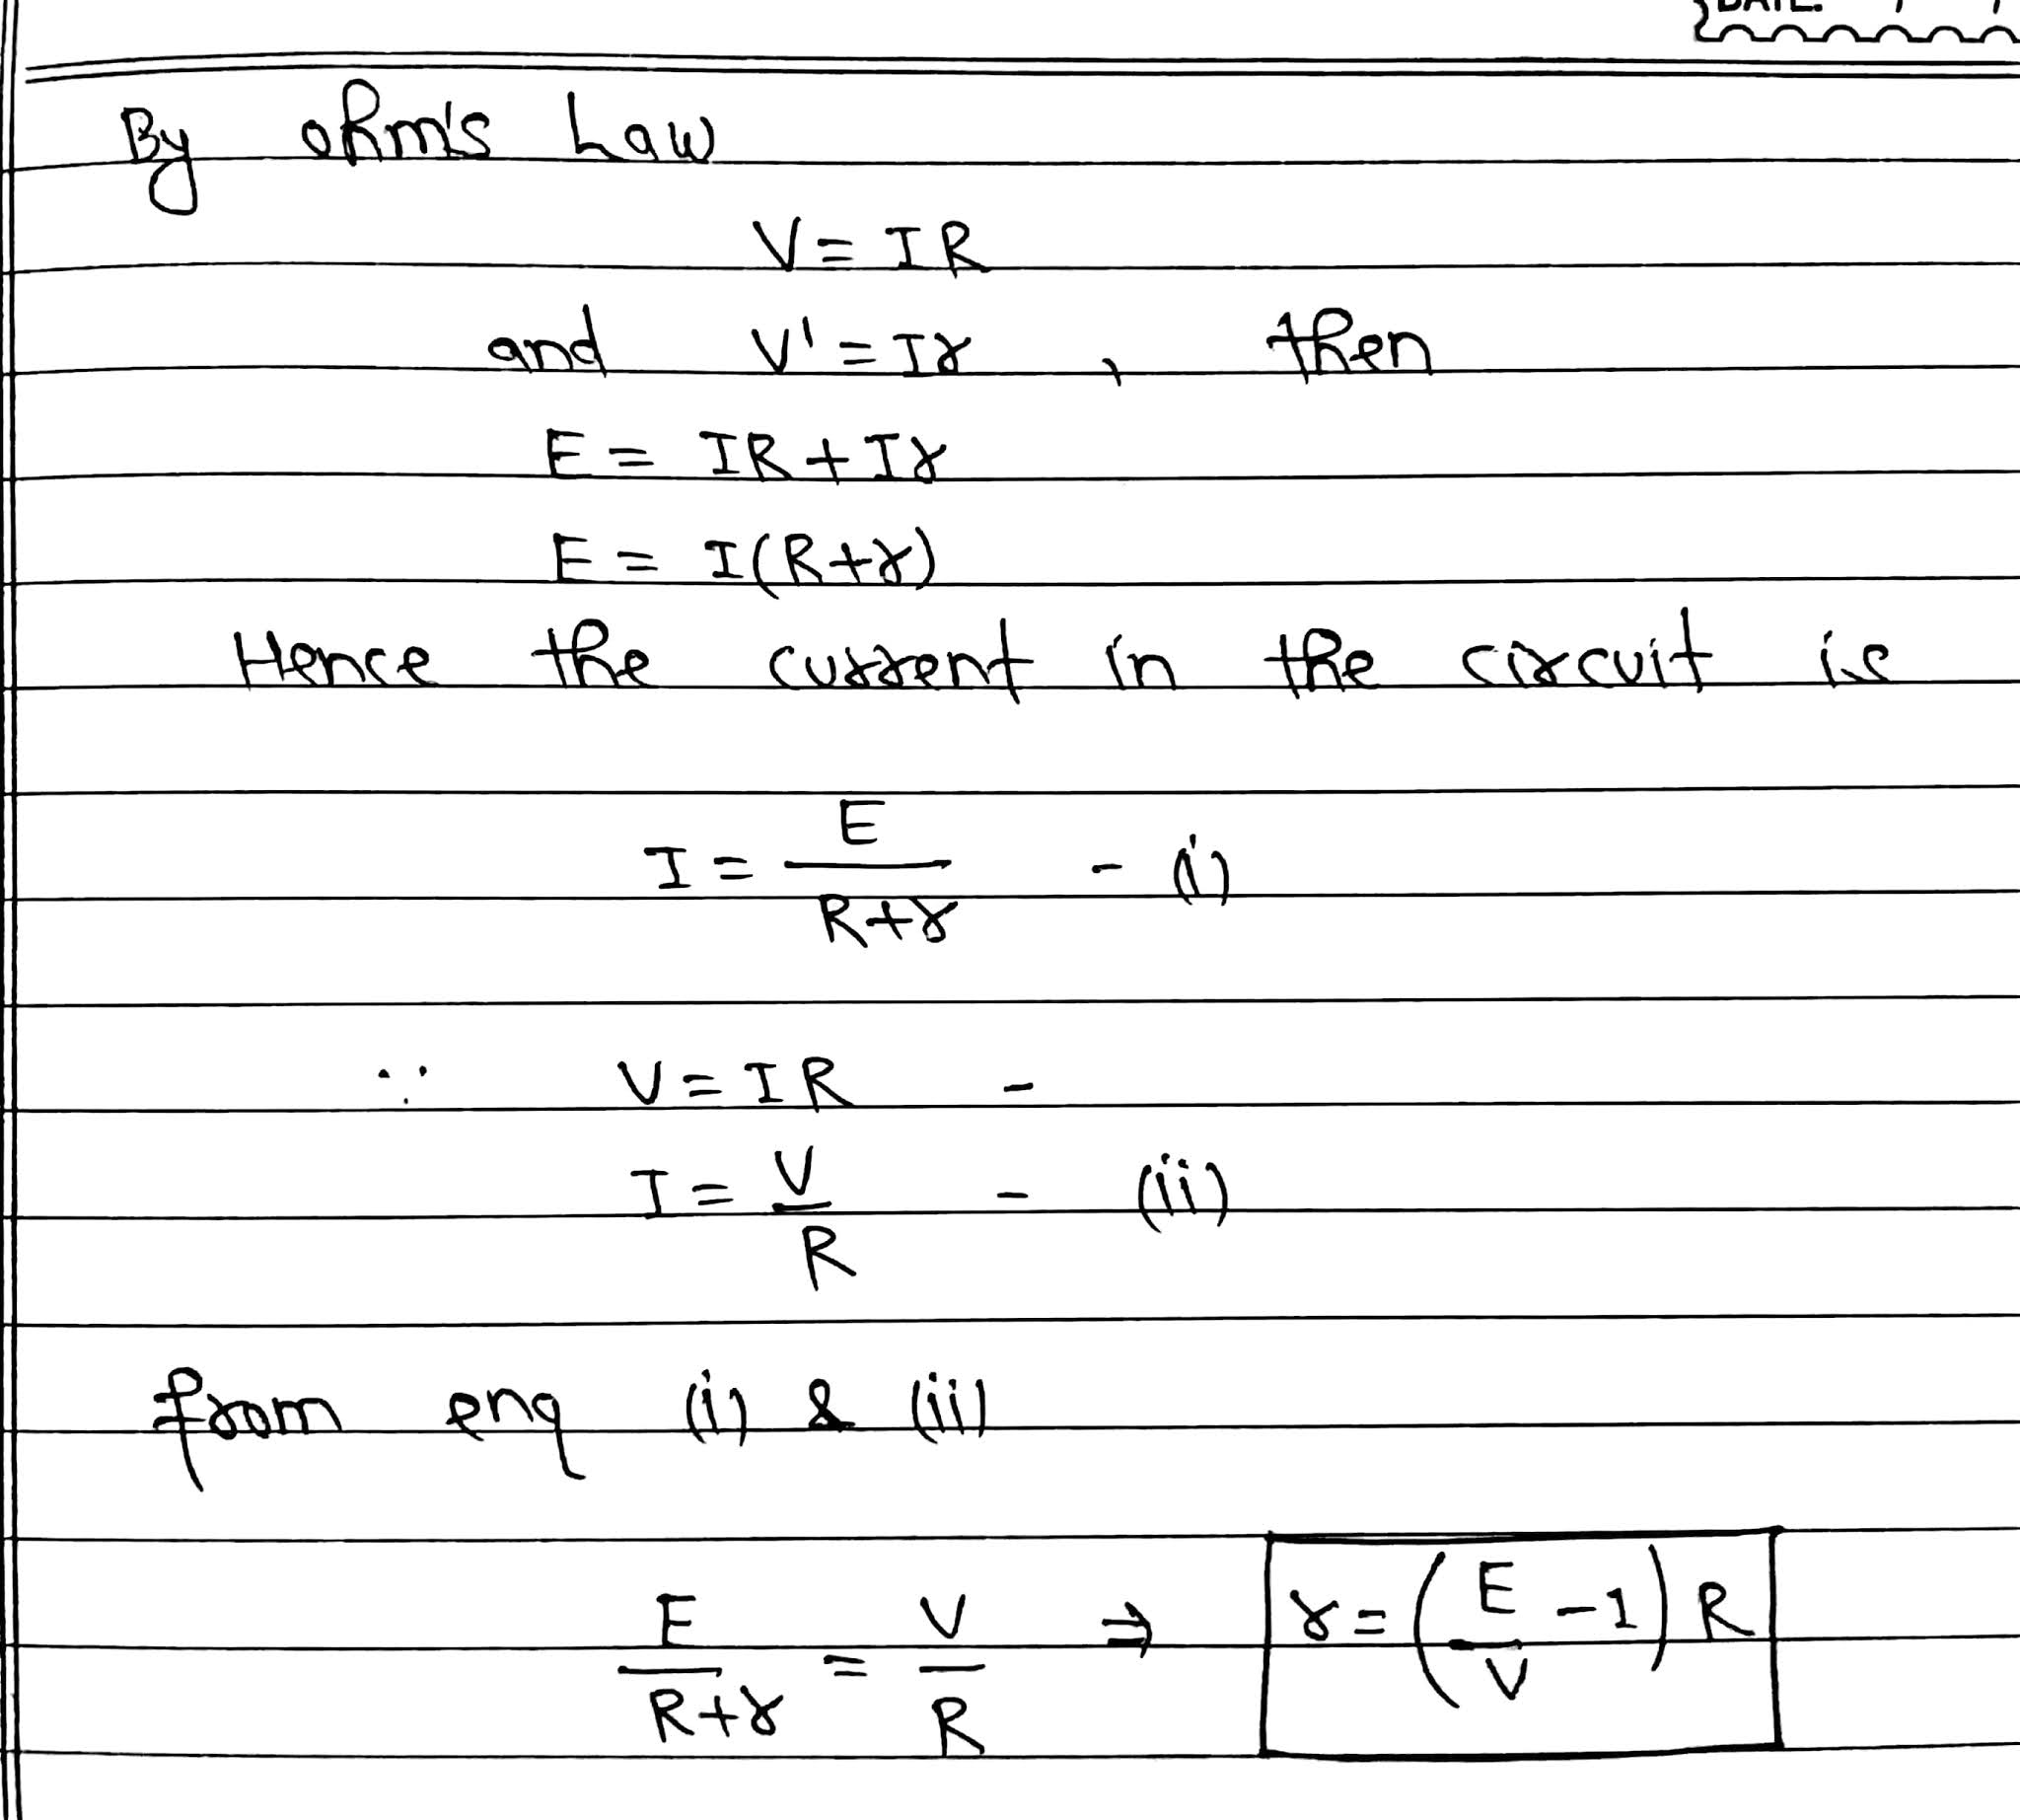 DATE: / /
By ohm's Law
V = IR
and V' = Ir , then
E = IR + Ir
E = I(R+r)
Hence the current in the circuit is
I = E/(R+r) - (i)
∵ V = IR -
I = V/R - (ii)
from enq (i) & (ii)
E/(R+r) = V/R ⇒ r = (E/V - 1) R